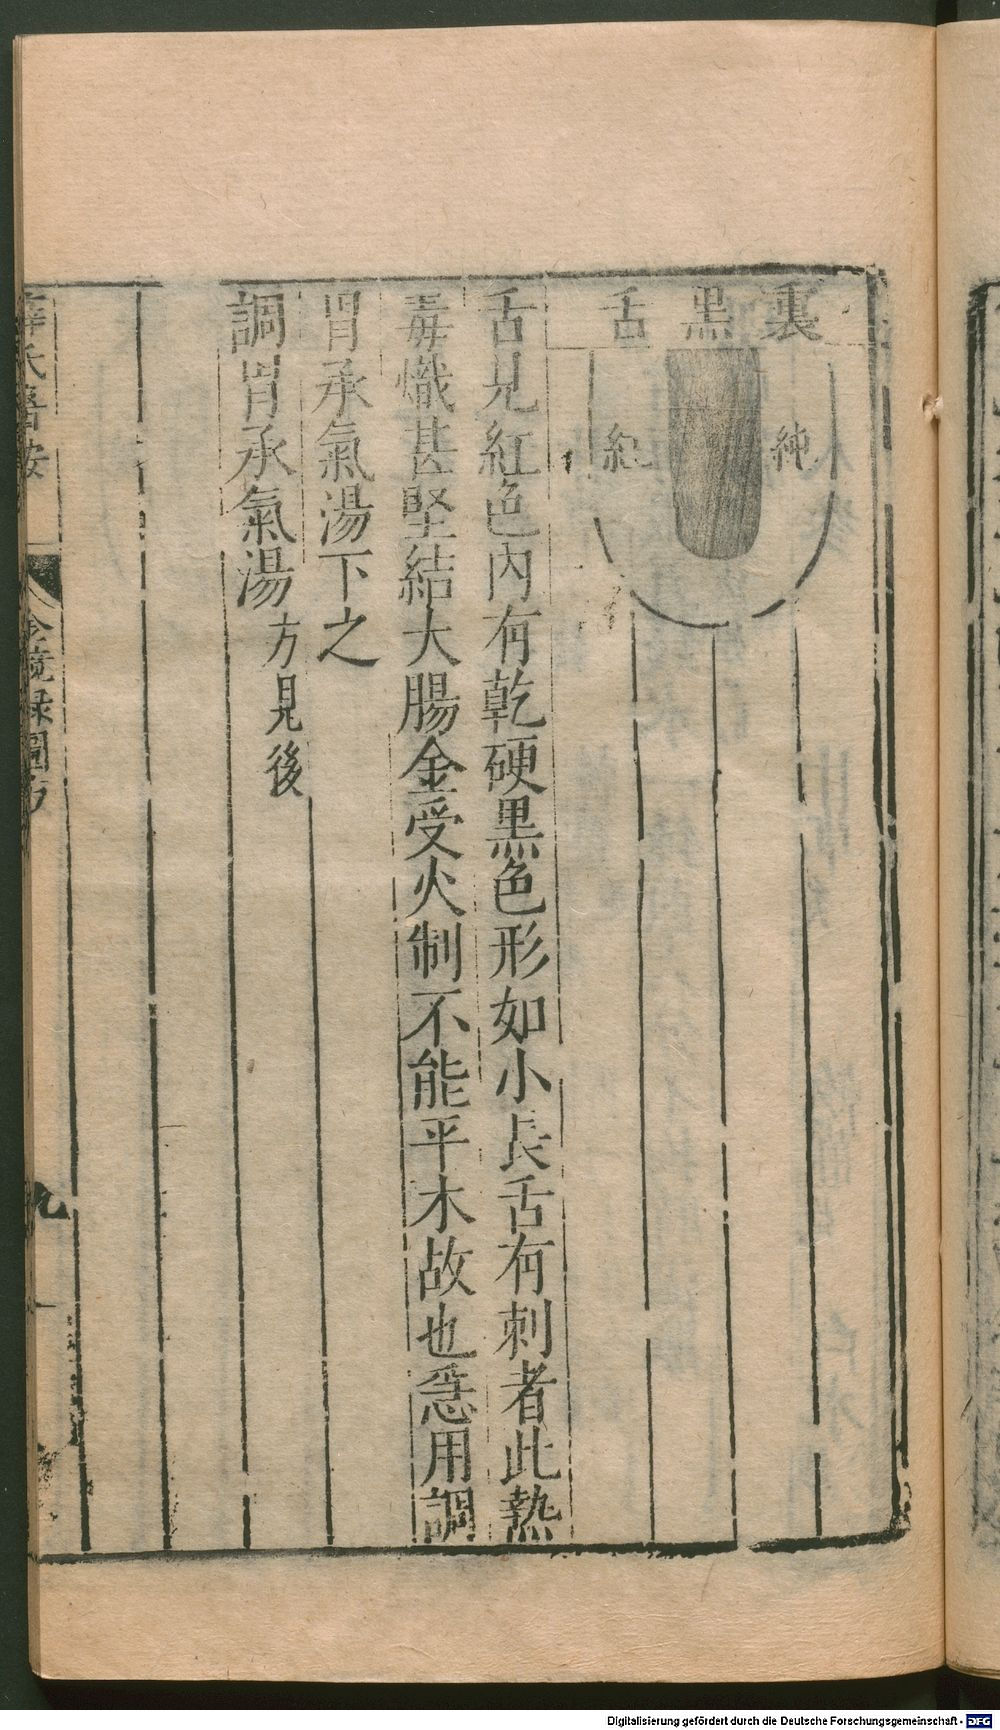 裏黑舌
純
紅
舌見紅色內有乾硬黑色形如小長舌有刺者此熱
毒熾甚堅結大腸金受火制不能平木故也急用調
胃承氣湯下之
調胃承氣湯方見後
薛氏醫按
金鏡録圖方
九
Digitalisierung gefördert durch die Deutsche Forschungsgemeinschaft - DFG